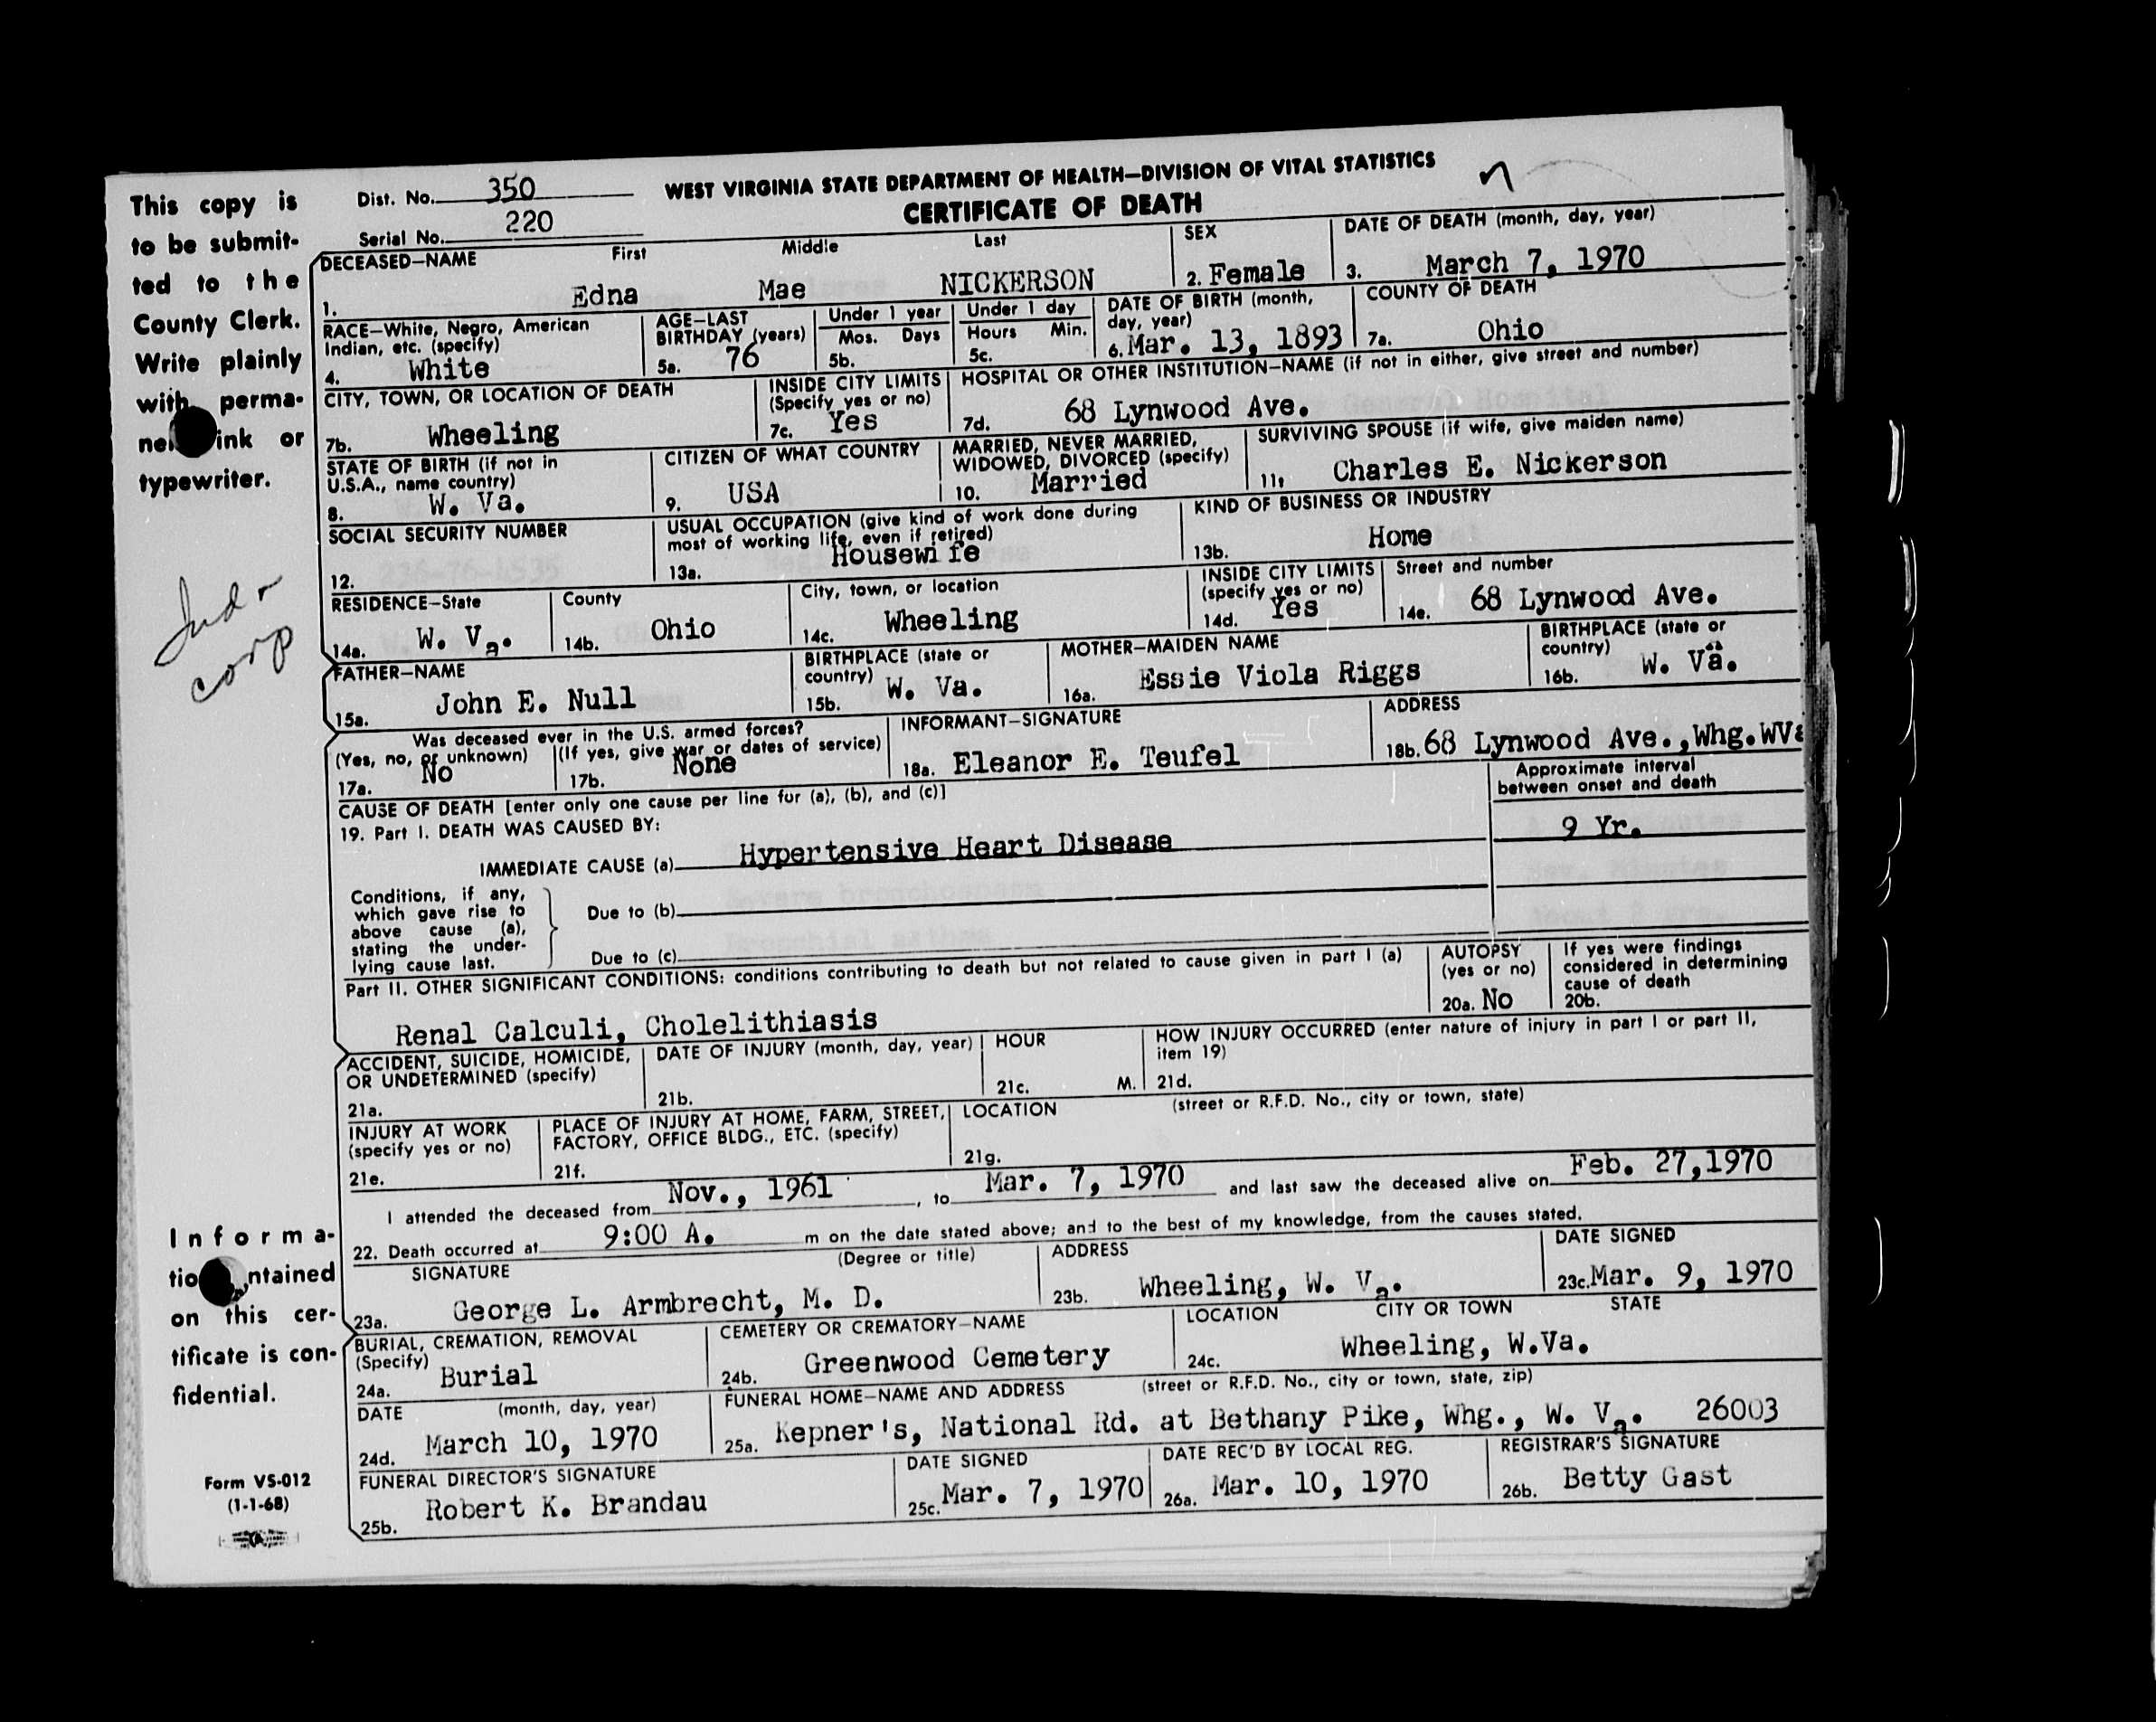 This copy is
to be submit-
ted to the
County Clerk.
Write plainly
with perma-
ink or
typewriter.
Dist. No. 350
Serial No. 220
WEST VIRGINIA STATE DEPARTMENT OF HEALTH—DIVISION OF VITAL STATISTICS
CERTIFICATE OF DEATH
DECEASED—NAME First Middle Last
1. Edna Mae NICKERSON
SEX
2. Female
DATE OF DEATH (month, day, year)
3. March 7, 1970
RACE—White, Negro, American
Indian, etc. (specify)
4. White
AGE—LAST
BIRTHDAY (years)
5a. 76
Under 1 year
Mos. Days
5b.
Under 1 day
Hours Min.
5c.
DATE OF BIRTH (month,
day, year)
6. Mar. 13, 1893
COUNTY OF DEATH
7a. Ohio
CITY, TOWN, OR LOCATION OF DEATH
7b. Wheeling
INSIDE CITY LIMITS
(Specify yes or no)
7c. Yes
HOSPITAL OR OTHER INSTITUTION—NAME (if not in either, give street and number)
7d. 68 Lynwood Ave.
STATE OF BIRTH (if not in
U.S.A., name country)
8. W. Va.
CITIZEN OF WHAT COUNTRY
9. USA
MARRIED, NEVER MARRIED,
WIDOWED, DIVORCED (specify)
10. Married
SURVIVING SPOUSE (if wife, give maiden name)
11. Charles E. Nickerson
SOCIAL SECURITY NUMBER
12.
USUAL OCCUPATION (give kind of work done during
most of working life, even if retired)
13a. Housewife
KIND OF BUSINESS OR INDUSTRY
13b. Home
RESIDENCE—State
14a. W. Va.
County
14b. Ohio
City, town, or location
14c. Wheeling
INSIDE CITY LIMITS
(specify yes or no)
14d. Yes
Street and number
14e. 68 Lynwood Ave.
FATHER—NAME
15a. John E. Null
BIRTHPLACE (state or
country)
15b. W. Va.
MOTHER—MAIDEN NAME
16a. Essie Viola Riggs
BIRTHPLACE (state or
country)
16b. W. Va.
Was deceased ever in the U.S. armed forces?
(Yes, no, or unknown) (If yes, give war or dates of service)
17a. No 17b. None
INFORMANT—SIGNATURE
18a. Eleanor E. Teufel
ADDRESS
18b. 68 Lynwood Ave.,Whg.WVa
CAUSE OF DEATH [enter only one cause per line for (a), (b), and (c)]
Approximate interval
between onset and death
19. Part I. DEATH WAS CAUSED BY:
IMMEDIATE CAUSE (a) Hypertensive Heart Disease 9 Yr.
Conditions, if any,
which gave rise to
above cause (a),
stating the under-
lying cause last.
Due to (b)
Due to (c)
Part II. OTHER SIGNIFICANT CONDITIONS: conditions contributing to death but not related to cause given in part I (a)
Renal Calculi, Cholelithiasis
AUTOPSY
(yes or no)
20a. No
If yes were findings
considered in determining
cause of death
20b.
ACCIDENT, SUICIDE, HOMICIDE,
OR UNDETERMINED (specify)
21a.
DATE OF INJURY (month, day, year)
21b.
HOUR
21c. M.
HOW INJURY OCCURRED (enter nature of injury in part I or part II,
item 19)
21d.
INJURY AT WORK
(specify yes or no)
21e.
PLACE OF INJURY AT HOME, FARM, STREET,
FACTORY, OFFICE BLDG., ETC. (specify)
21f.
LOCATION (street or R.F.D. No., city or town, state)
21g.
I attended the deceased from Nov., 1961, to Mar. 7, 1970 and last saw the deceased alive on Feb. 27,1970
22. Death occurred at 9:00 A. m on the date stated above; and to the best of my knowledge, from the causes stated.
SIGNATURE (Degree or title)
23a. George L. Armbrecht, M. D.
ADDRESS
23b. Wheeling, W. Va.
DATE SIGNED
23c. Mar. 9, 1970
BURIAL, CREMATION, REMOVAL
(Specify)
24a. Burial
CEMETERY OR CREMATORY—NAME
24b. Greenwood Cemetery
LOCATION CITY OR TOWN STATE
24c. Wheeling, W.Va.
DATE (month, day, year)
24d. March 10, 1970
FUNERAL HOME—NAME AND ADDRESS (street or R.F.D. No., city or town, state, zip)
25a. Kepner's, National Rd. at Bethany Pike, Whg., W. Va. 26003
FUNERAL DIRECTOR'S SIGNATURE
25b. Robert K. Brandau
DATE SIGNED
25c. Mar. 7, 1970
DATE REC'D BY LOCAL REG.
26a. Mar. 10, 1970
REGISTRAR'S SIGNATURE
26b. Betty Gast
corp
Informa-
on this cer-
tificate is con-
fidential.
Form VS-012
(1-1-68)